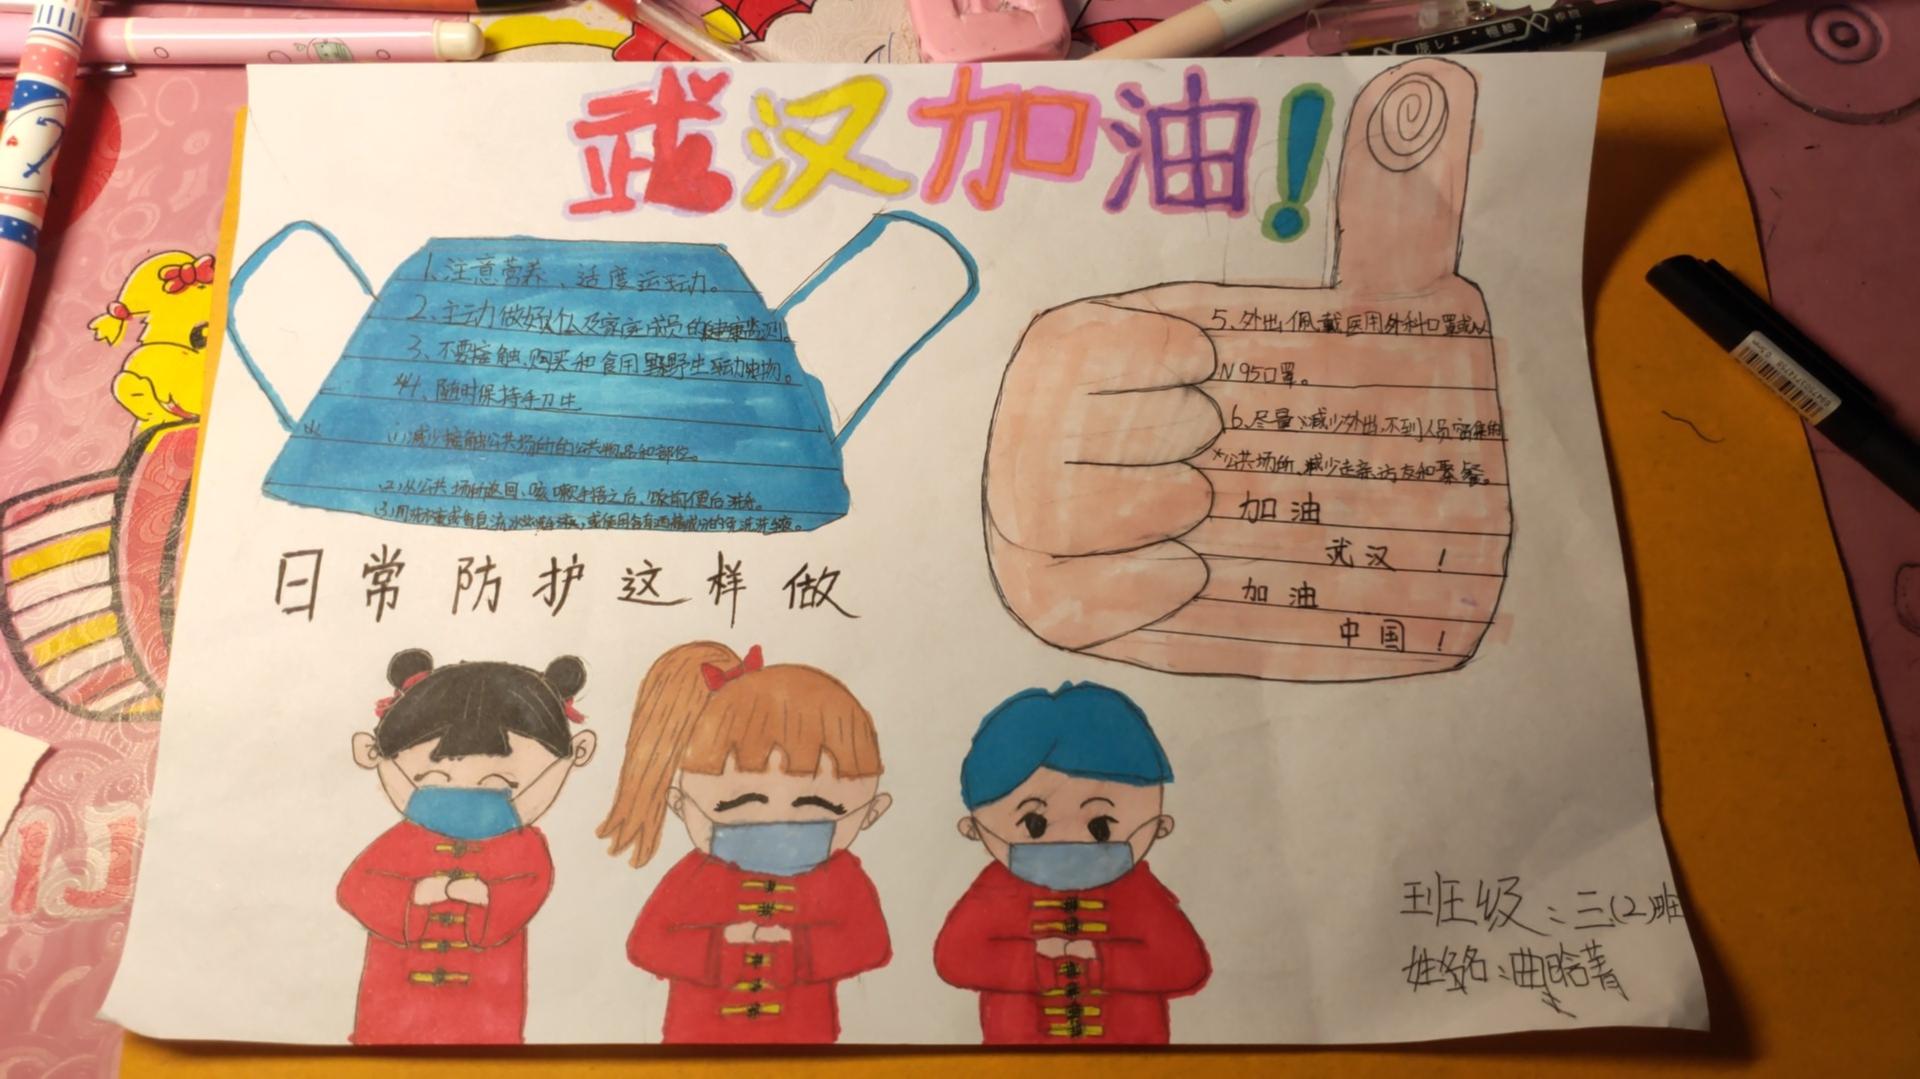 武汉加油!
1、注意营养、适度运动。
2、主动做好个人及家庭成员的健康监测。
3、不要接触、购买和食用野生动物。
4、随时保持手卫生
(1)减少接触公共场所的公共物品和部位。
(2)从公共场所返回、咳嗽手捂之后、饭前便后洗手。
日常防护这样做
5、外出佩戴医用外科口罩或
N95口罩。
6、尽量减少外出,不到人员密集的
*公共场所,减少走亲访友和聚餐。
加油
武汉!
加油
中国!
班级:三(2)班
姓名:曲晗菁